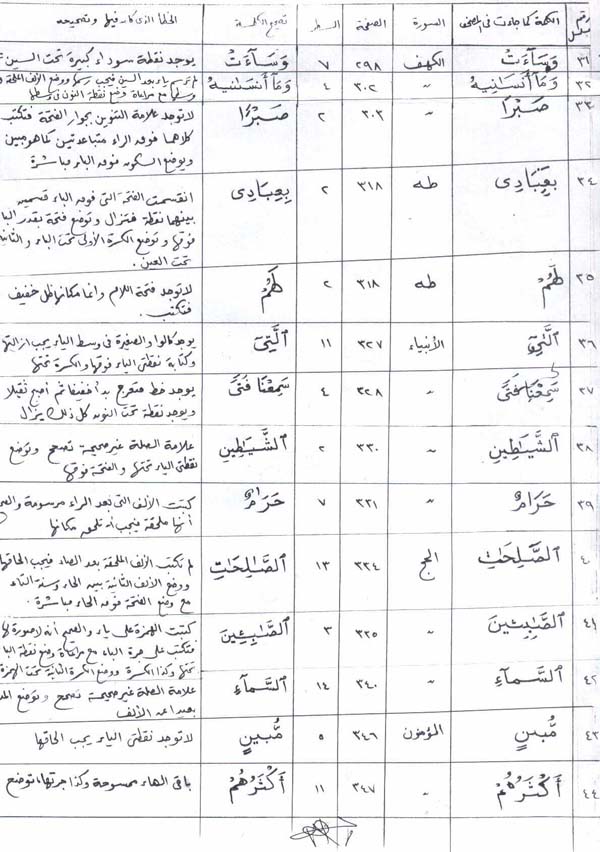 رقم مسلسل الكلمة كما جاءت فى المصحف السورة الصفحة السطر تصحيح الكلمة الخطأ الذى كان فيها وتصحيحه
٣١ وَسَآءَتْ الكهف ٢٩٨ ٧ وَسَآءَتْ يوجد نقطة سوداء كبيرة تحت السين
٣٢ وَمَآ أَنسَانِيهُ ״ ٣٠٢ ٤ وَمَآ أَنسَىٰنِيهُ
٣٣ صَبْرًا ״ ٣٠٣ ٢ صَبْرًا لا توجد علامة التنوين بجوار الفتحة فتكتب
كلاهما فوق الراء متباعدتين كما هو مبين
ويوضع السكون فوق الباء مباشرة
٣٤ بِعِبَادِى طه ٣١٨ ٢ بِعِبَادِى انقسمت الفتحة التى فوق الباء قسمين
بينهما نقطة فتزال وتوضع فتحة بقدر البا
فوقها وتوضع الكسرة الأولى تحت الباء والثانية
تحت العين .
٣٥ لَهُمْ طه ٣١٨ ٢ لَهُمْ لا توجد فتحة اللام وانما مكانها ظل خفيف
فتكتب .
٣٦ ٱلَّتِى الأنبياء ٣٢٧ ١١ ٱلَّتِى يوجد كالواو الصغيرة فى وسط الياء يجب ازالتها
وكتابة نقطتى الياء فوقها والكسرة تحتها
٣٧ سَمِعْنَا فَتًى ״ ٣٢٨ ٤ سَمِعْنَا فَتًى يوجد خط متعرج بدأ خفيفا ثم أصبح ثقيلا
ويوجد نقطة تحت النون كل ذلك يزال
٣٨ ٱلشَّيَاطِينِ ״ ٣٣٠ ٢ ٱلشَّيَٰطِينِ علامة الصلة غير صحيحة تصحح وتوضع
نقطتى الياء تحتها والفتحة فوقها
٣٩ حَرَامٌ ״ ٣٣١ ٧ حَرَٰمٌ كتبت الألف التى بعد الراء مرسومة والصحيح
أنها ملحقة فيجب أن تلحق مكانها
٤٠ ٱلصَّٰلِحَٰتِ الحج ٣٣٤ ١٣ ٱلصَّٰلِحَٰتِ لم تكتب الألف الملحقة بعد الصاد فيجب الحاقها
ووضع الألف الثانية بين الحاء وسنة التاء
مع وضع الفتحة فوق الحاء مباشرة .
٤١ ٱلصَّٰبِئِينَ ״ ٣٣٥ ٣ ٱلصَّٰبِـِٔينَ كتبت الهمزة على ياء والصحيح أنه لا صورة لها
فتكتب على جرة الباء مع مراعاة وضع نقطة الباء
تحتها وكذا الكسرة ووضع الكسرة الثانية تحت الهمزة
٤٢ ٱلسَّمَآءِ ״ ٣٤٠ ١٤ ٱلسَّمَآءِ علامة الصلة غير صحيحة تصحح وتوضع المد
بعيدا عن الألف
٤٣ مُّبِينٍ المؤمنون ٣٤٦ ٥ مُّبِينٍ لا توجد نقطتى الياء يجب الحاقها
٤٤ أَكْثَرُهُمْ ״ ٣٤٧ ١١ أَكْثَرُهُمْ باقى الهاء ممسوحة وكذا جرتها، توضع